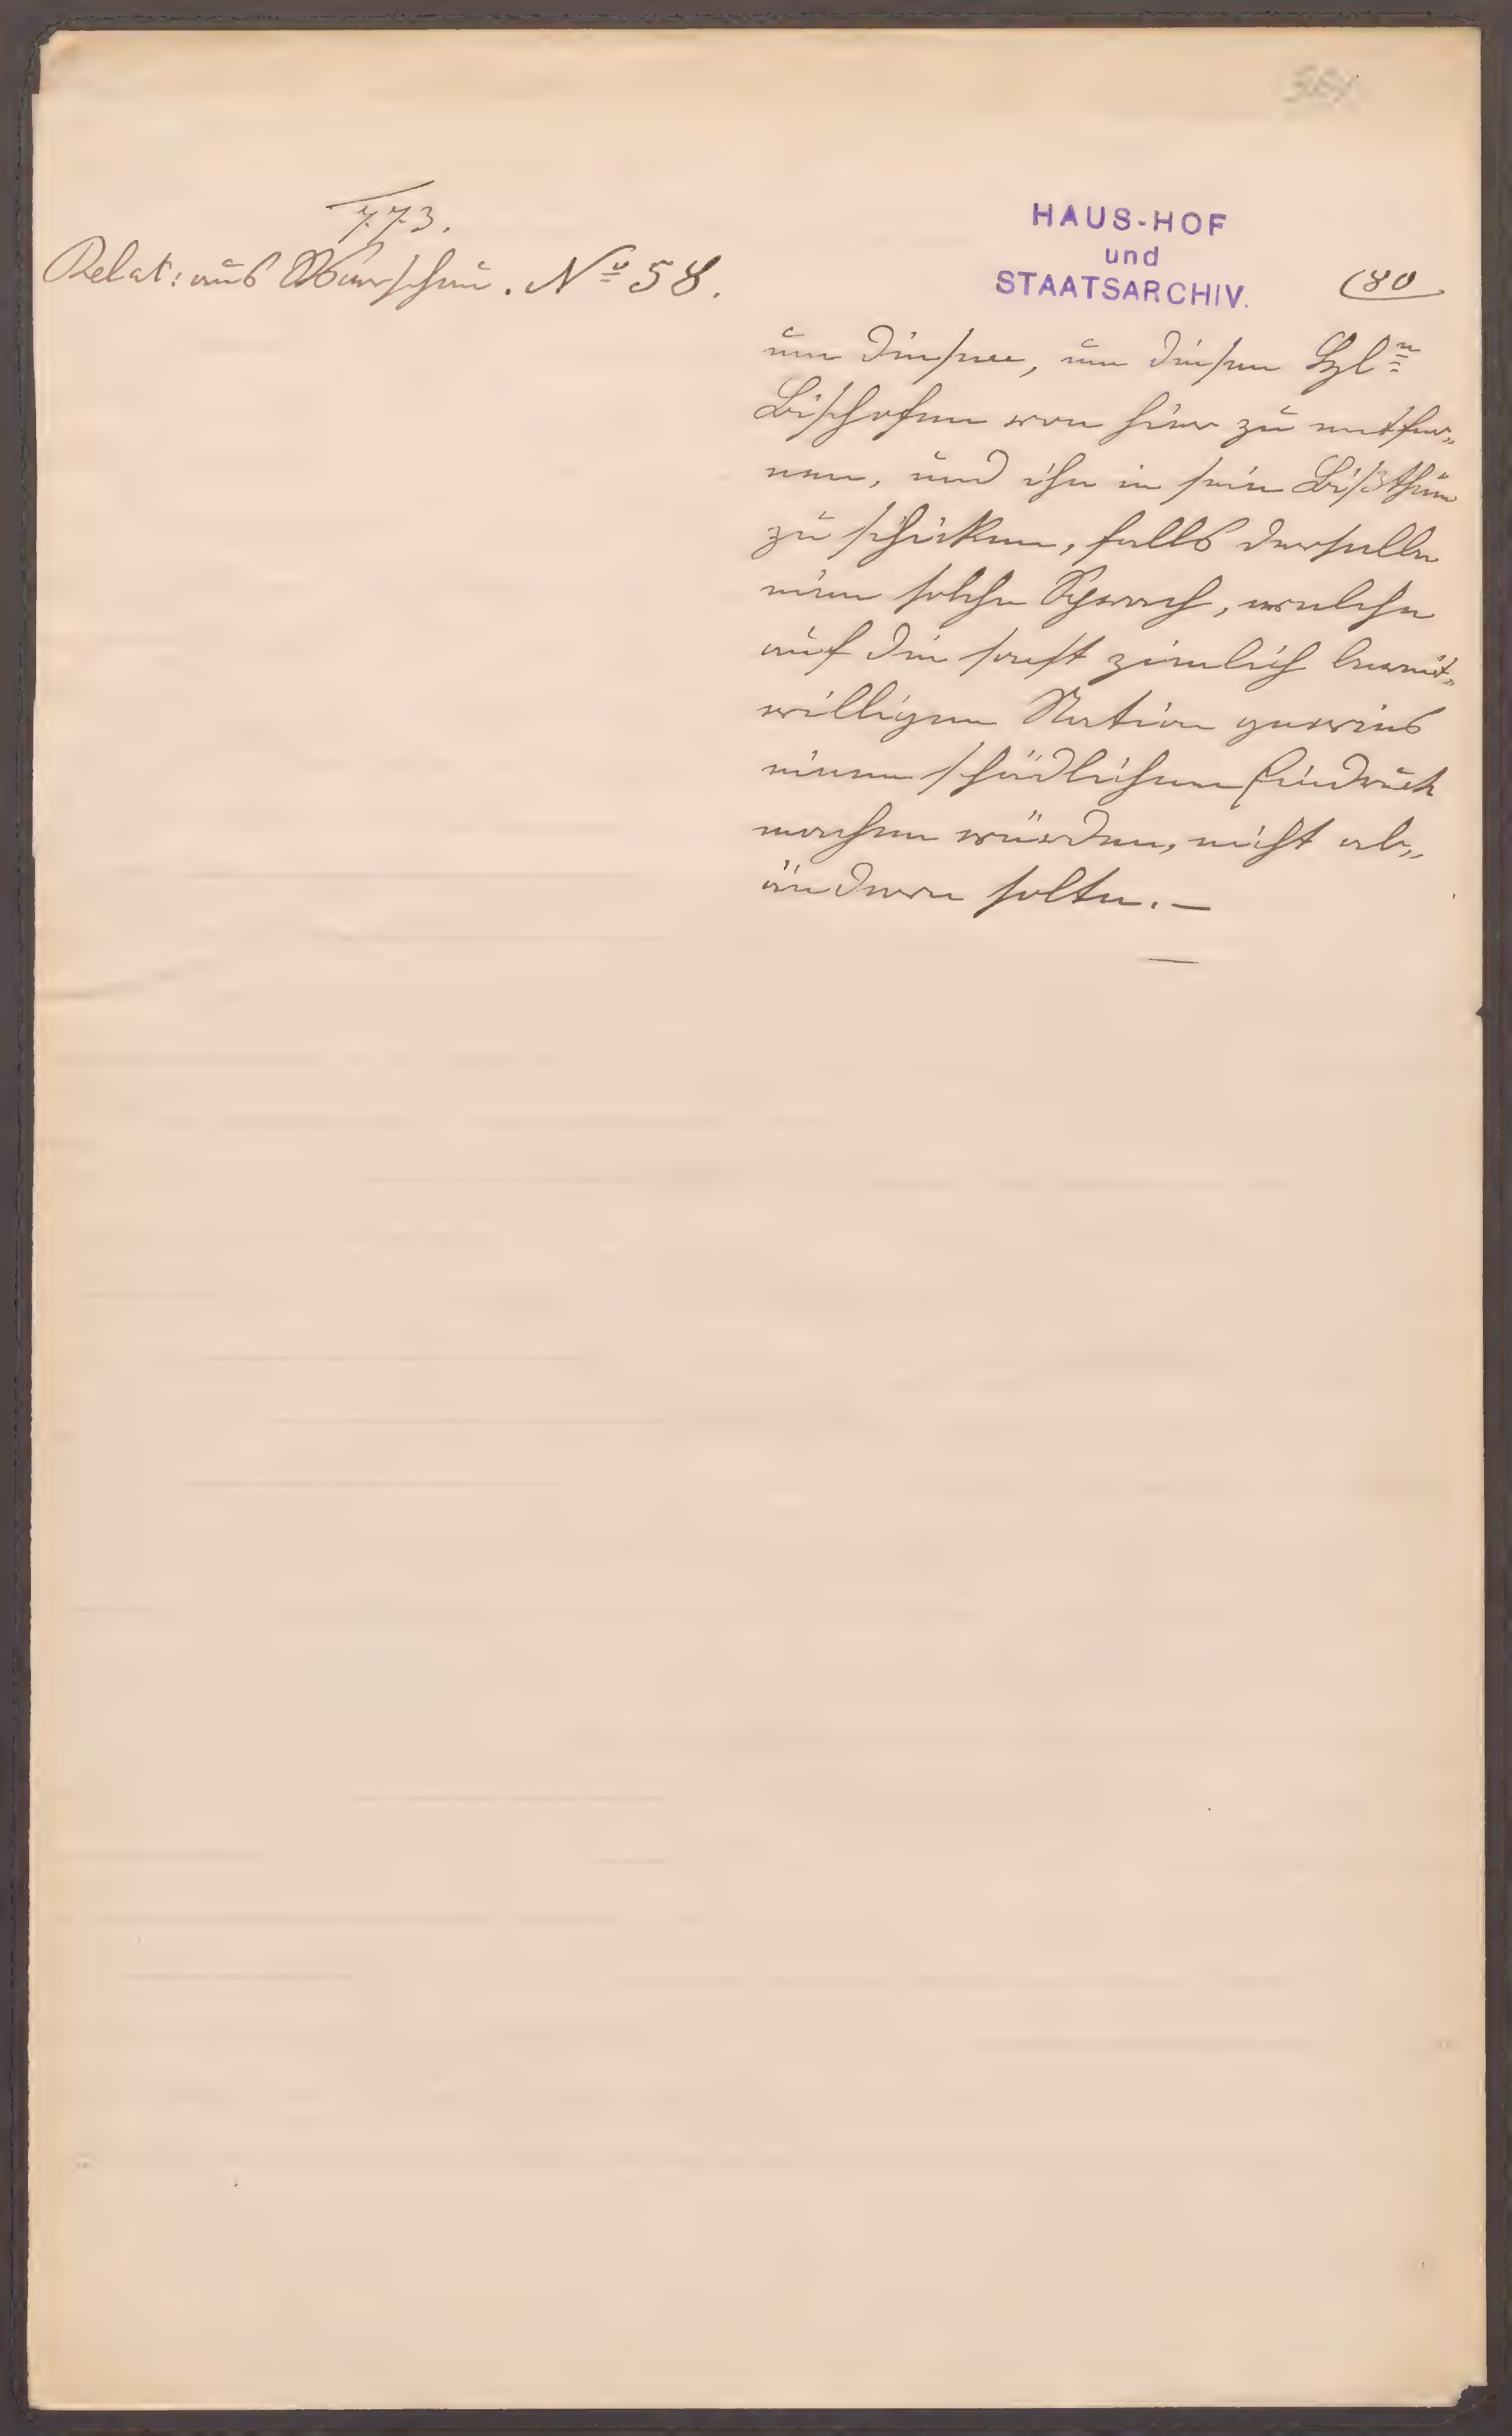 773.
Relat: aus Warschau. Nº 58.
HAUS-HOF
und
STAATSARCHIV.
(80
um diesen
Bischofen von hier zu entfer„
nen, und ihn in sein Bißthum
zu schicken, falls derselbe
eine solche Sprach, welche
auf die sonst zimlich
willigen Nation gewies
einen schädlichen Eindruck
machen würden, nicht ab„
ändern solte. —